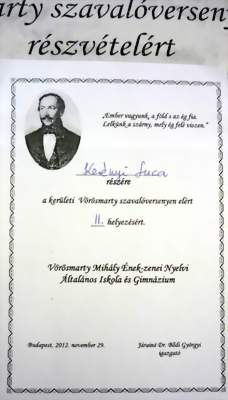 arty szavalóverseny
részvételért
„Ember vagyunk, a föld s az ég fia.
Lelkünk a szárny, mely ég felé viszen.”
Kerényi Luca
részére
a kerületi Vörösmarty szavalóversenyen elért
II. helyezésért.
Vörösmarty Mihály Ének-zenei Nyelvi
Általános Iskola és Gimnázium
Budapest, 2012. november 29.
Járainé Dr. Bődi Györgyi
igazgató